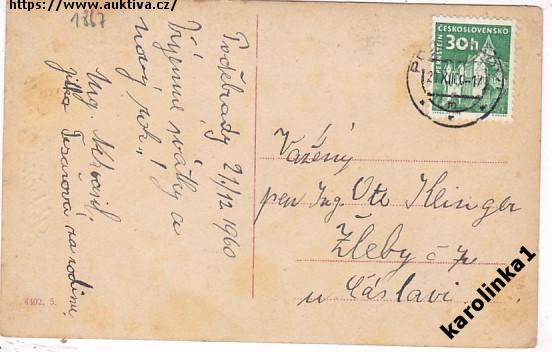 https://www.auktiva.cz/
1367
Poděbrady 21/12 1960
Příjemné svátky a
nový rok"!
Ing.
Jitka Tesařová za rodinu
ČESKOSLOVENSKO
30h
PERNŠTEJN
Vážený
pan Ing Ota Klinger
Žleby č 7
u Čáslavi
4402, 5.
karolinka1